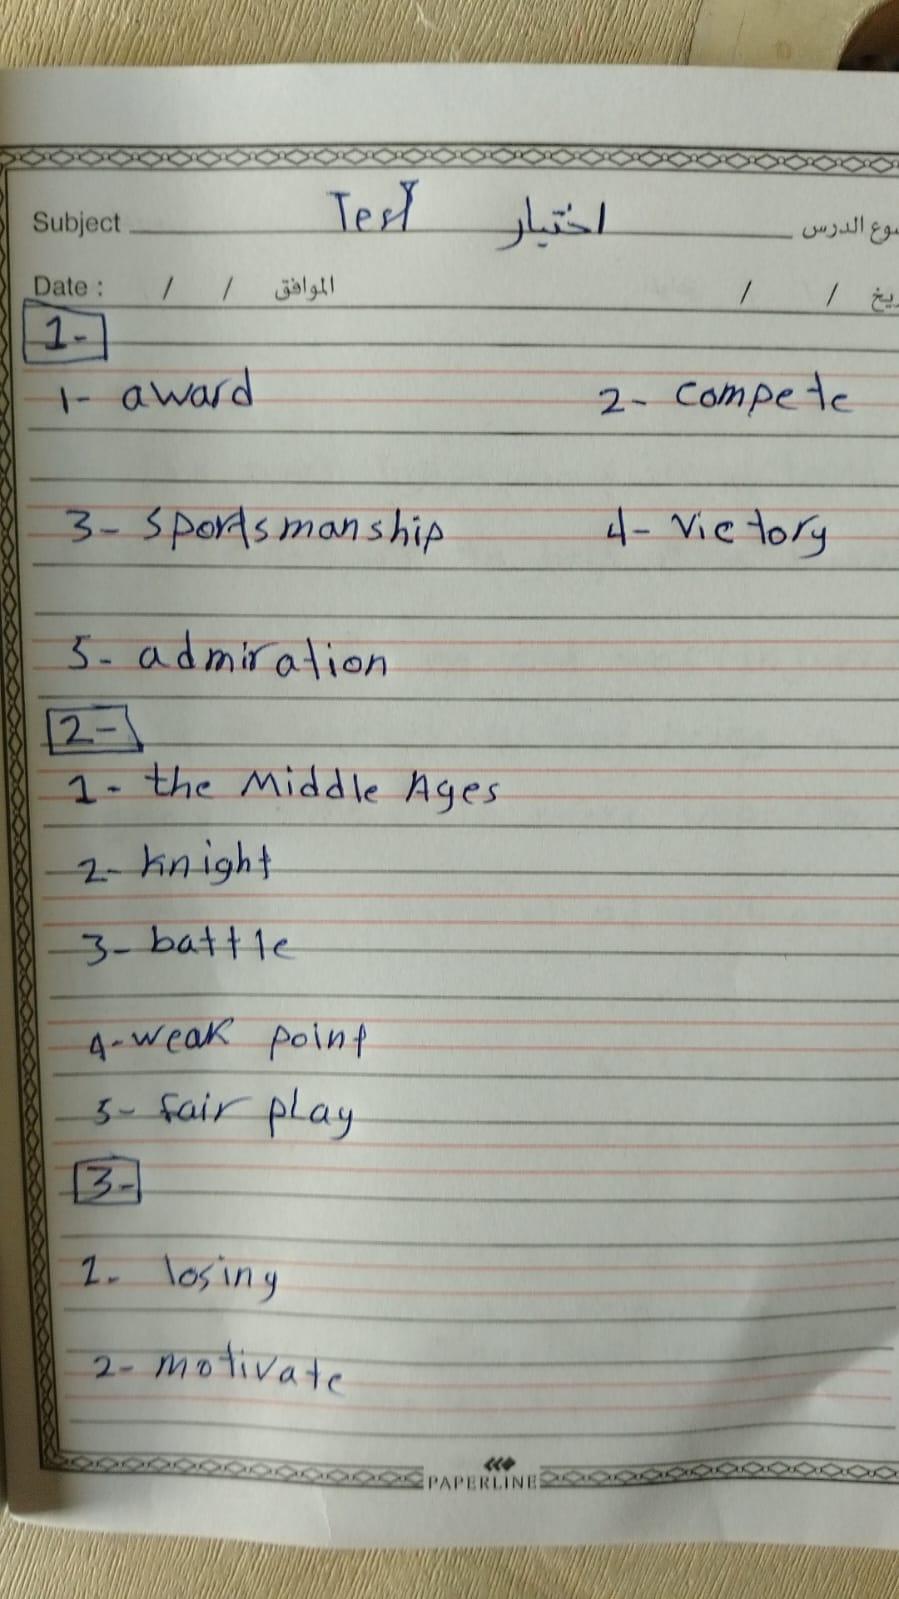 Subject Test اختبار وع الدرس
Date : / / الموافق / / ريخ
1-
1- award 2- compete
3- sportsmanship 4- victory
5- admiration
2-
1- the Middle Ages
2- knight
3- battle
4- weak point
5- fair play
3-
1. losing
2- motivate
PAPERLINE